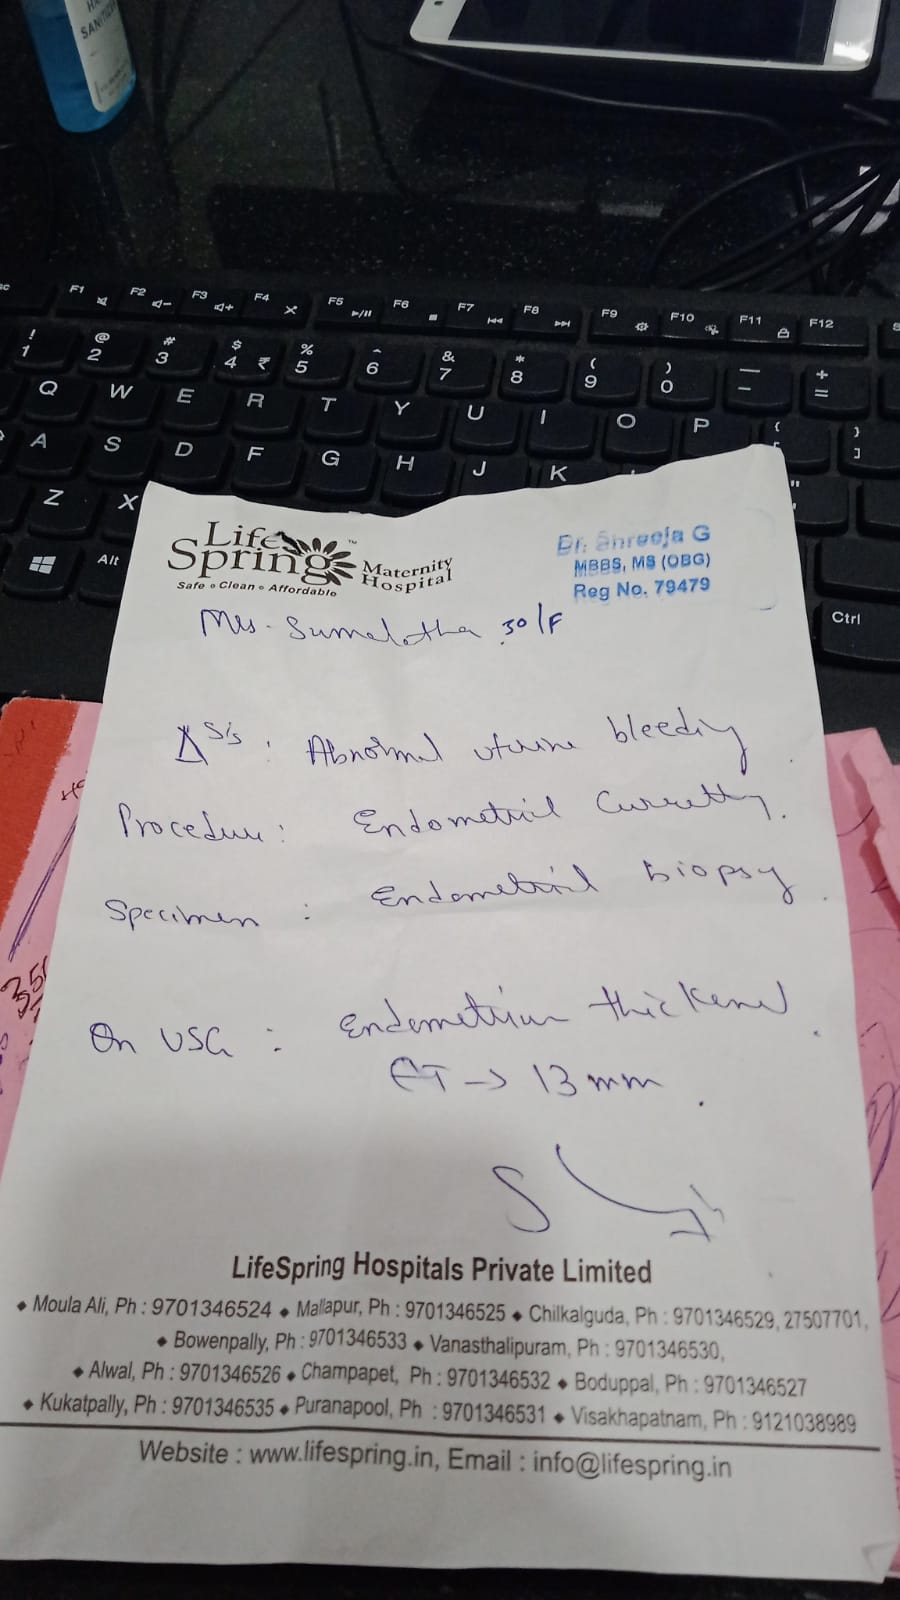 HAND
SANITIZER
F1 F2 F3 F4 F5 F6 F7 F8 F9 F10 F11 F12
! @ # $ % ^ & * ( ) — +
1 2 3 4 ₹ 5 6 7 8 9 0 – =
Q W E R T Y U I O P { }
[ ]
A S D F G H J K "
Z X
Alt
Ctrl
Life Spring ™
Maternity Hospital
Safe • Clean • Affordable
Dr. Shreeja G
MBBS, MS (OBG)
Reg No. 79479
Mrs. Sumalatha 30/F
Δsis : Abnormal uterine bleeding
Procedure : Endometrial Curretting.
Specimen : Endometrial Biopsy.
On USG : Endometrium thickened.
ET → 13 mm.
LifeSpring Hospitals Private Limited
◆ Moula Ali, Ph : 9701346524 ◆ Mallapur, Ph : 9701346525 ◆ Chilkalguda, Ph : 9701346529, 27507701,
◆ Bowenpally, Ph : 9701346533 ◆ Vanasthalipuram, Ph : 9701346530,
◆ Alwal, Ph : 9701346526 ◆ Champapet, Ph : 9701346532 ◆ Boduppal, Ph : 9701346527
◆ Kukatpally, Ph : 9701346535 ◆ Puranapool, Ph : 9701346531 ◆ Visakhapatnam, Ph : 9121038989
Website : www.lifespring.in, Email : info@lifespring.in